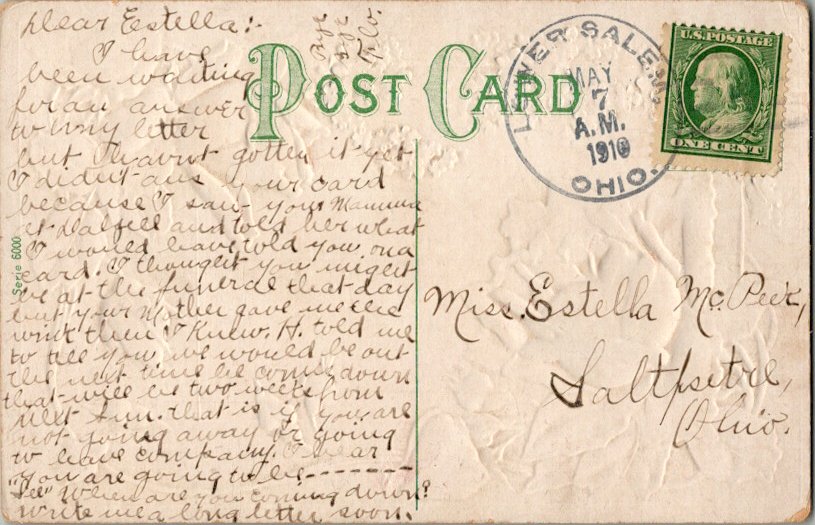 Dear Estella:-
I have
been waiting
for an answer
to my letter
but I havnt gotten it yet
I didn't ans your card
because I saw your Mamma
at Dalzell and told her what
I would have told you on a
card. I thought you might
be at the funeral that day
but your Mother gave me the
wink then I knew. H. told me
to tell you we would be out
the next time he comes down
that will be two weeks from
next Sun. that is if you are
not going away or going
to have company. I hear
"you are going to be --------
"See" When are you coming down?
write me a long letter soon.
Bye
Bye
Flo.
POST CARD
LOWER SALEM
MAY
7
A.M.
1910
OHIO.
U.S. POSTAGE
ONE CENT
Miss. Estella McPeek,
Saltpetre,
Ohio.
Serie 6000